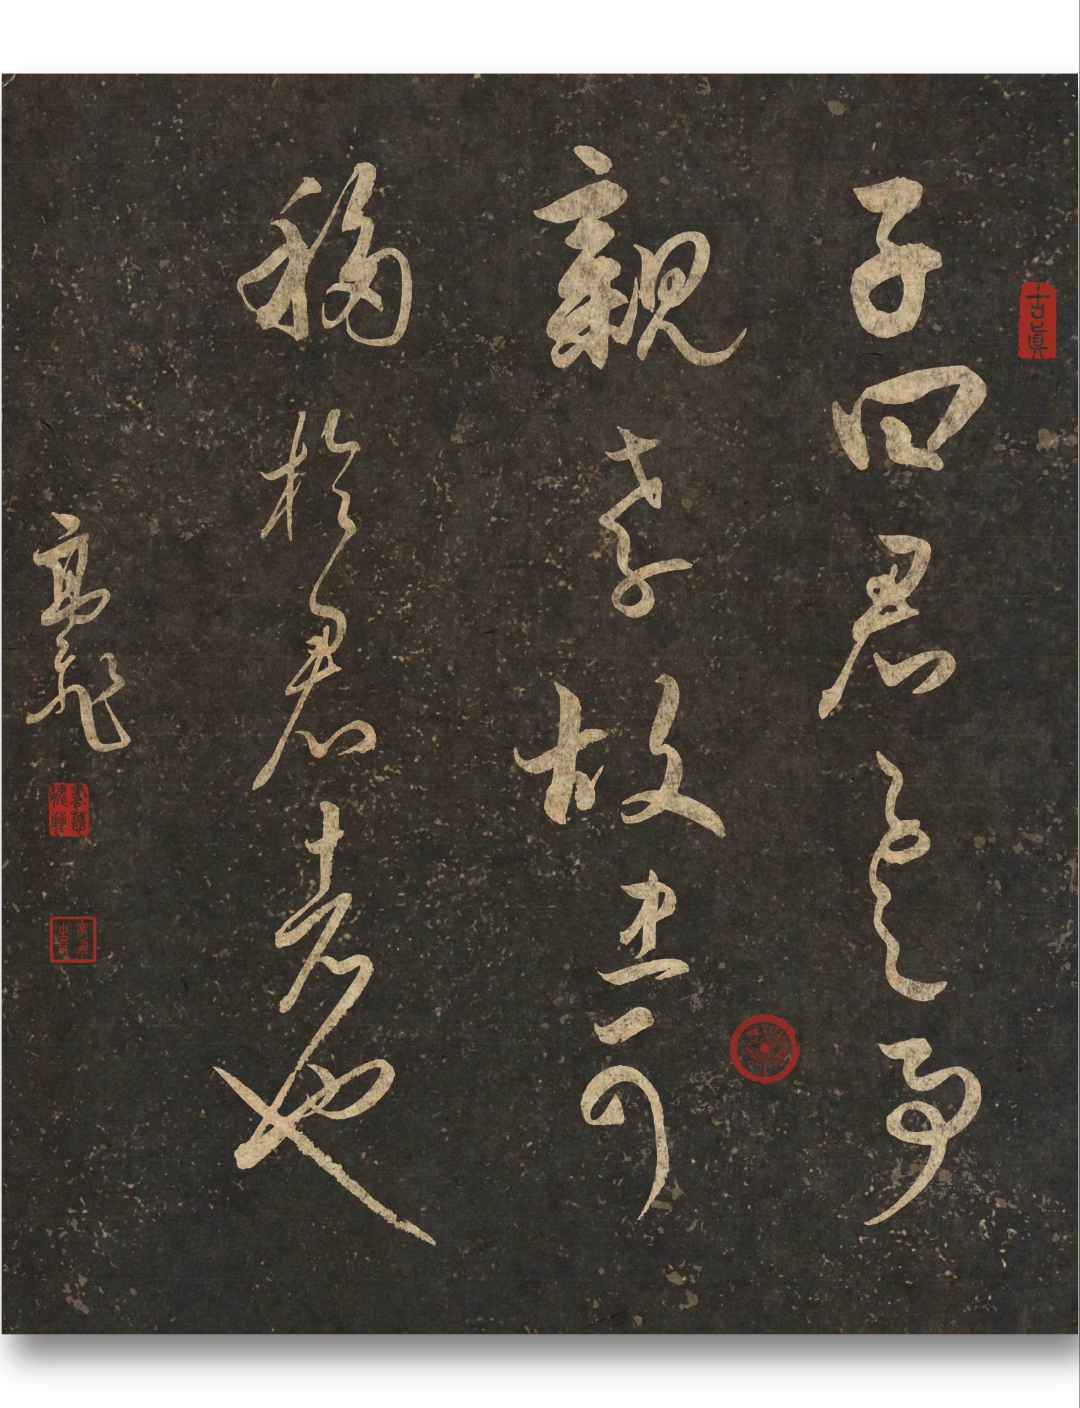 子曰君子之事
親孝故忠可
移於君者也
高飛
古真